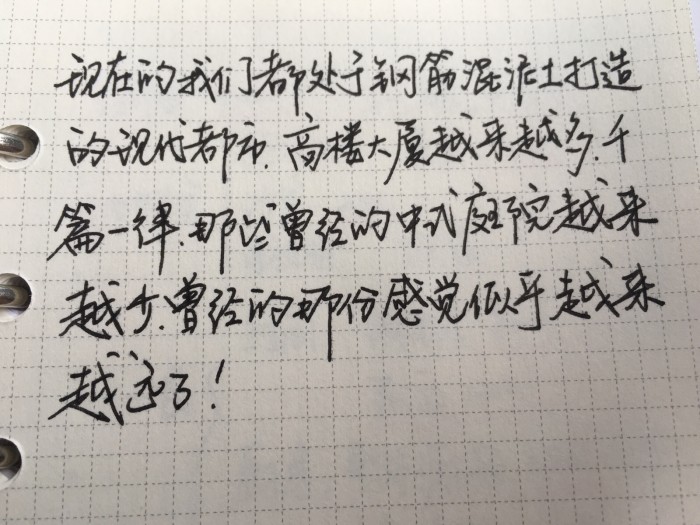 现在的我们都处于钢筋混泥土打造
的现代都市.高楼大厦越来越多.千
篇一律.那些曾经的中式庭院越来
越少.曾经的那份感觉似乎越来
越远了!